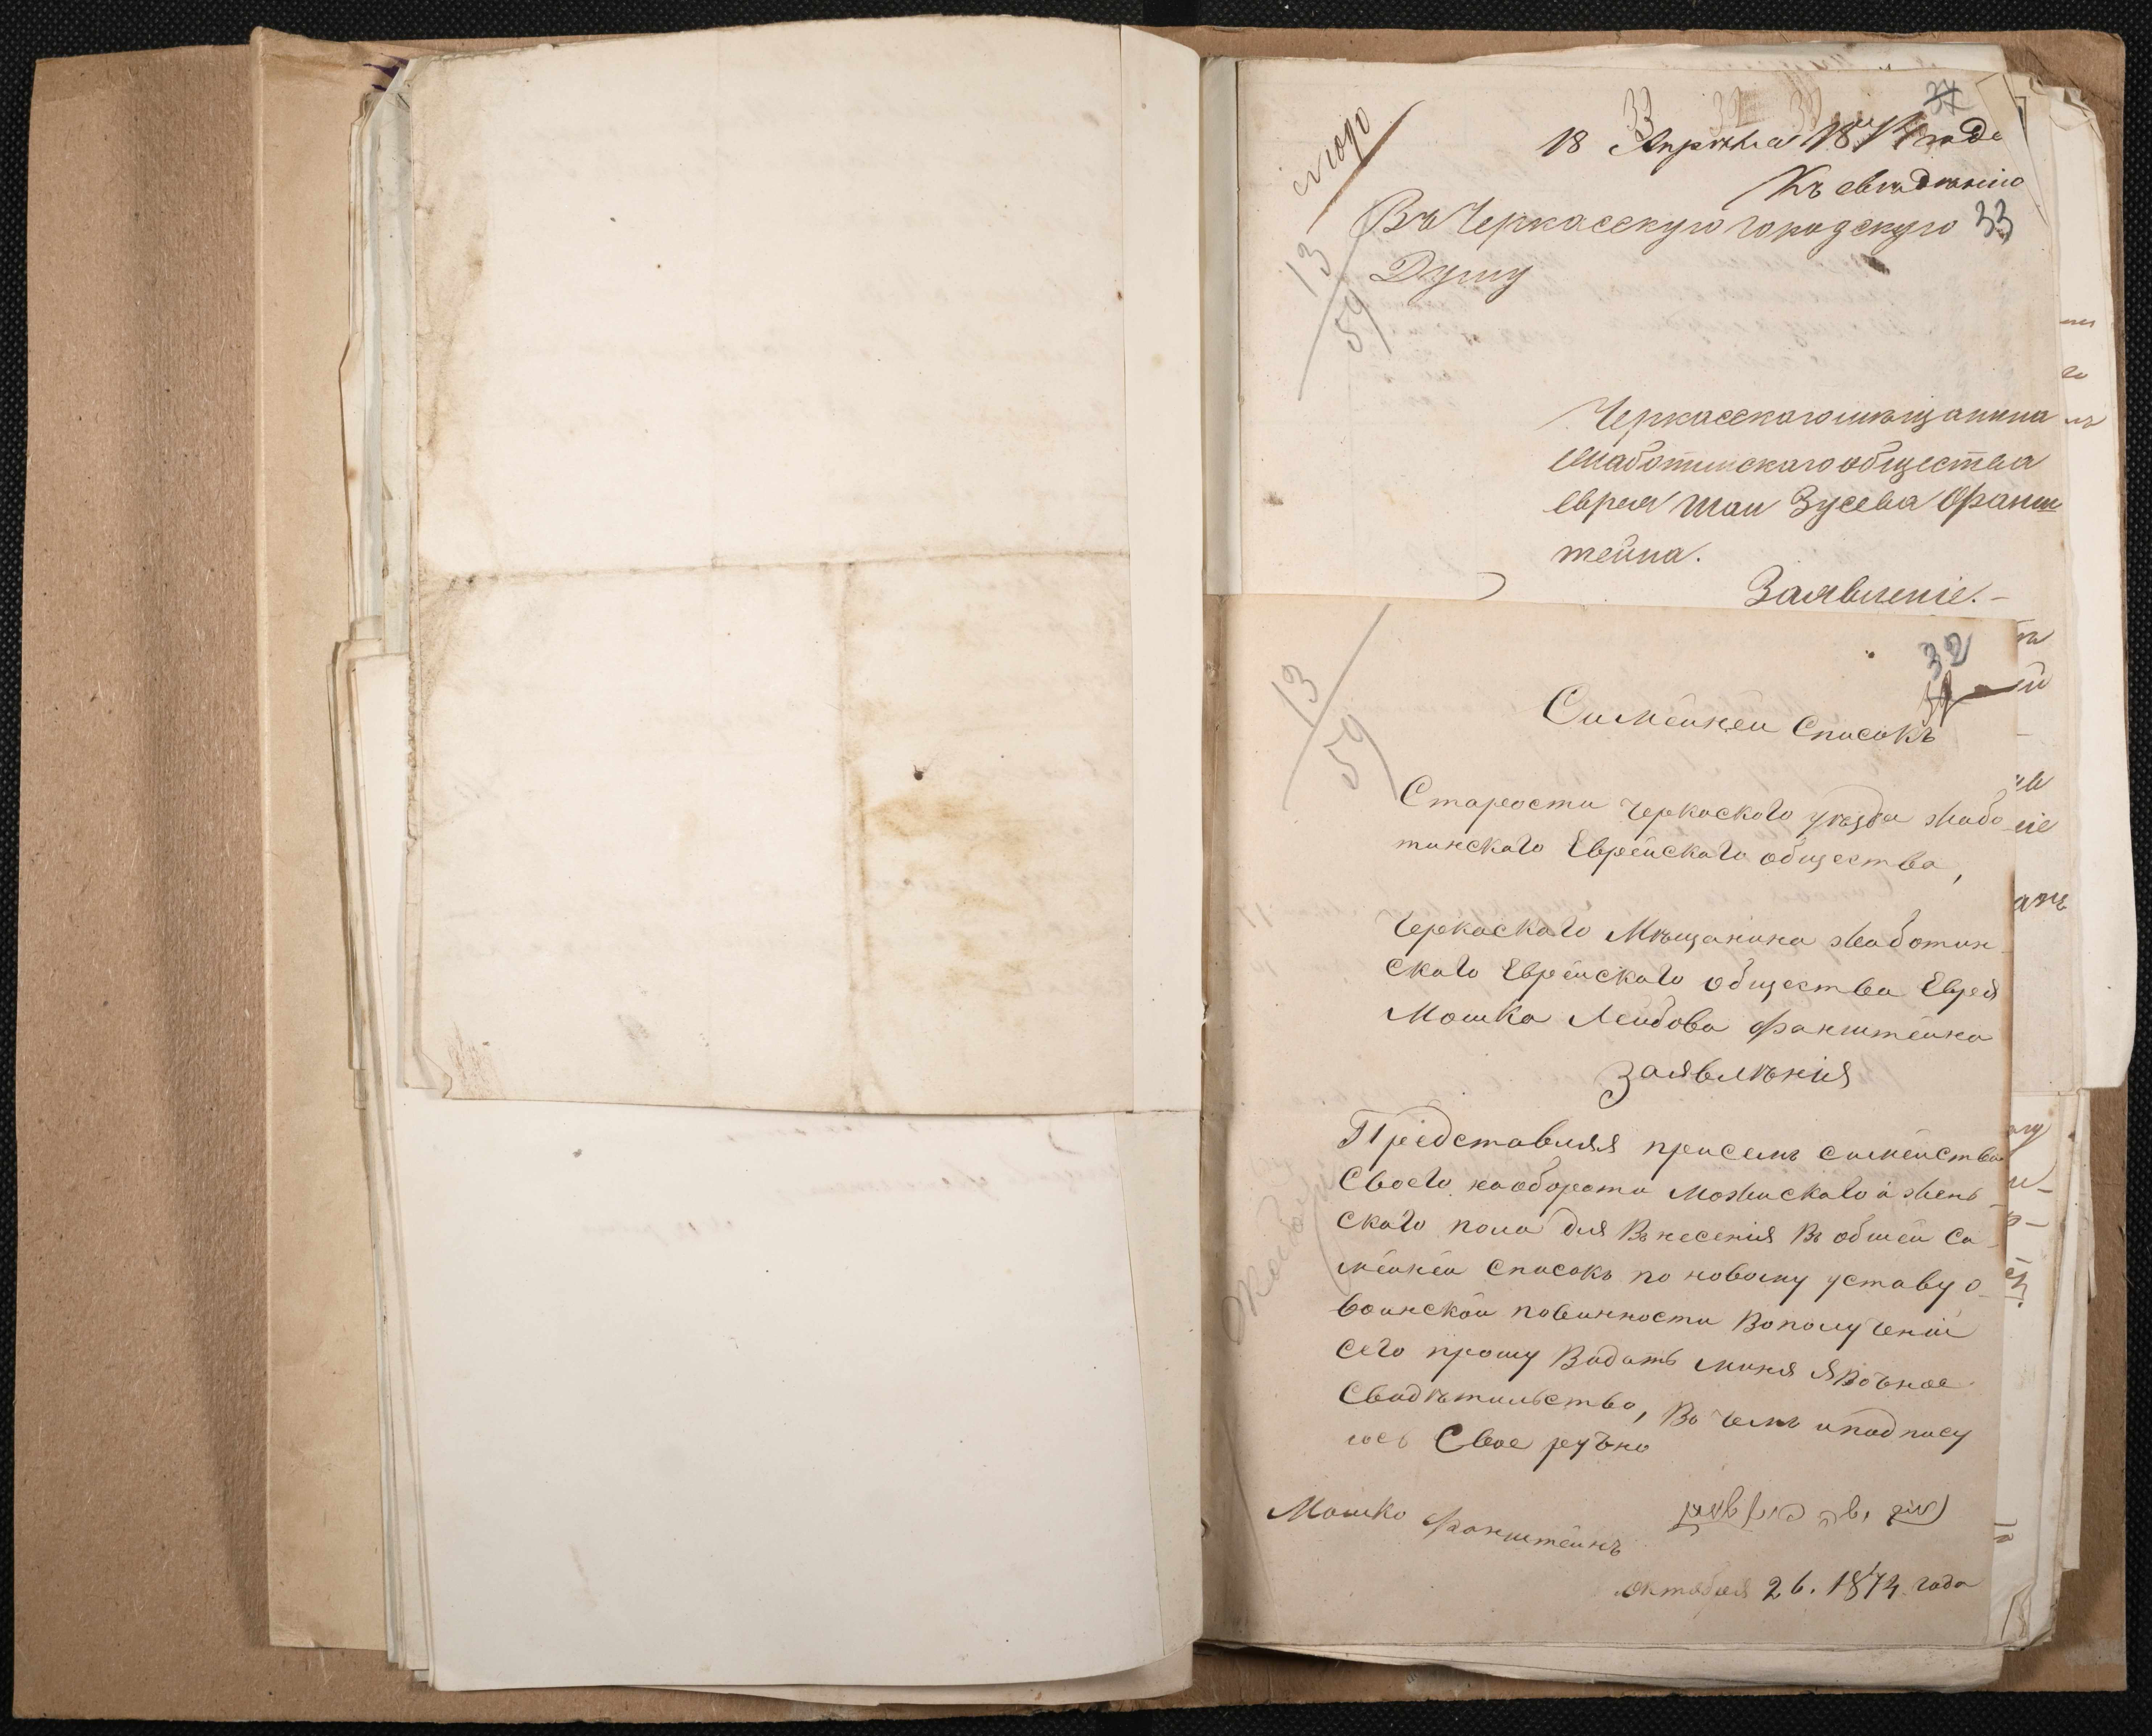 33
18 Апрѣля 1874 года
Къ свѣдѣнію
Въ Черкасскую городскую 33
Думу
13
59
Черкасскаго мѣщанина
Жаботинскаго общества
еврея Шаи Зусева Франш
тейна.
Заявленіе.-
32
13
59
Симейнеи Списокъ
Старости Черкаского уѣзда Жабо
тинского Еврейского общества,
Черкаского Мѣщанина Жаботин
ского Еврейского общества Еврея
Мошка Лейбова Франштейна
Заявлѣния
Предствавляя присемъ симейства
Своего наоборатиМожискаго и жень
ского пола для Внесения Въ общей Си
мейней Списокъ по новому уставу о
воинской повинности Вополучений
сего прошу Видать миня Явочное
Свидѣтильство, Во чемъ иподпису
юсь Свое ручно
Мошко Франштейнъ
октября 26. 1874 года